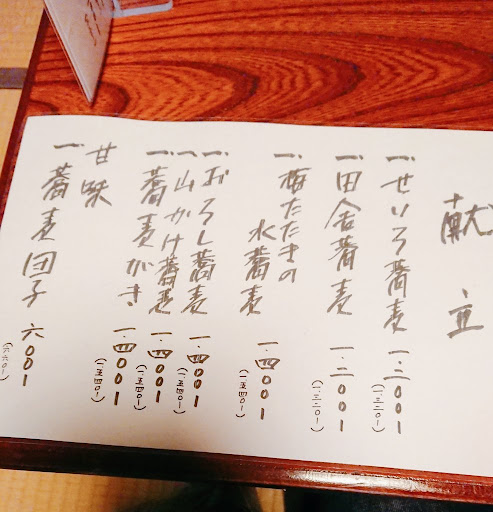 献立
一、せいろ蕎麦 一・二〇〇ー
(一・三二〇ー)
一、田舎蕎麦 一・二〇〇ー
(一・三二〇ー)
一、梅たたきの
水蕎麦 一・四〇〇ー
(一・五四〇ー)
一、おろし蕎麦 一・四〇〇ー
(一・五四〇ー)
一、山かけ蕎麦 一・四〇〇ー
(一・五四〇ー)
一、蕎麦がき 一・四〇〇ー
(一・五四〇ー)
甘味
一、蕎麦団子 六〇〇ー
(六六〇ー)